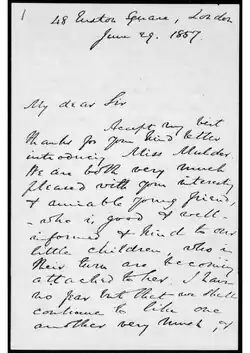 1
48 Euston Square, London
June 29. 1887.
My dear Sir
Accept my best
thanks for your kind letter
introducing Miss Mulder.
We are both very much
pleased with your interesting
& amiable young friend,
- who is good & well-
informed & kind to our
little children who in
their turn are becoming
attached to her. I have
no fear but that we shall
continue to like one
another very much, &